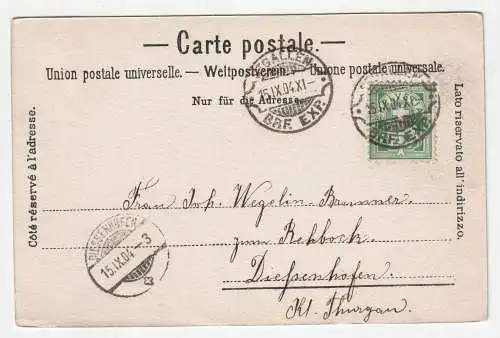 — Carte postale. —
Union postale universelle. — Weltpostverein. — Unione postale universale.
Nur für die Adresse.
Côté réservé à l'adresse.
Lato riservato all'indirizzo.
GALLEN
15.IX.04.XI—
BRF. EXP.
15.IX.04.XI—
BRF. EXP.
Frau Joh. Wegelin-Brunner
zum Rehbock
Diessenhofen
Kt. Thurgau.
DIESSENHOFEN
15.IX.04.–3